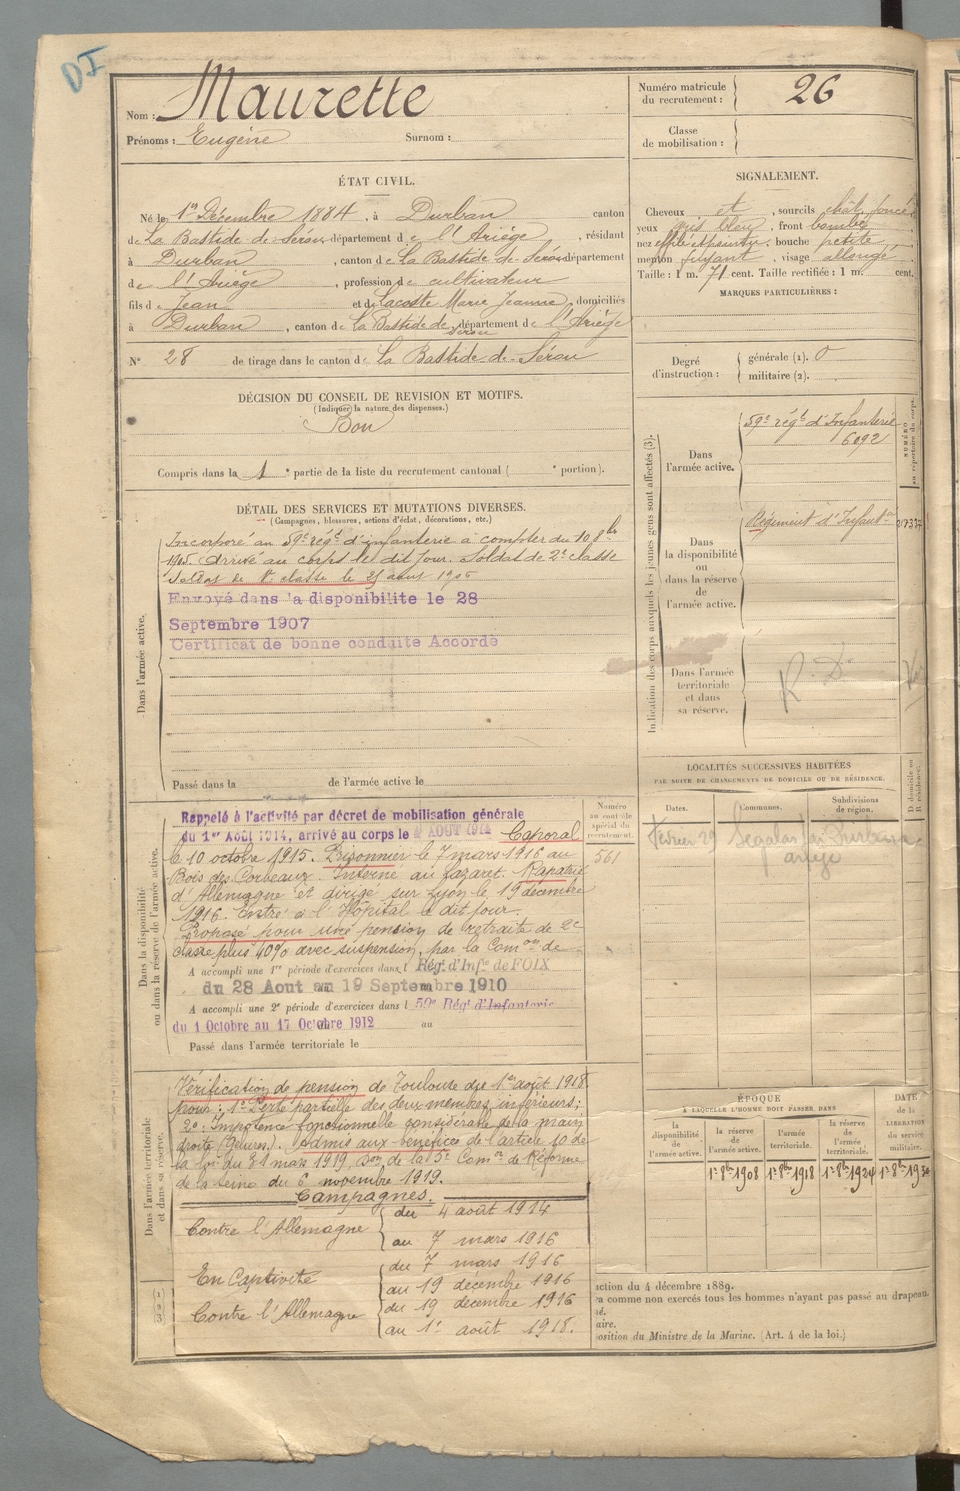 DI
Nom : Maurette
Prénoms : Eugène Surnom :
Numéro matricule du recrutement : 26
Classe de mobilisation :
ÉTAT CIVIL.
Né le 1er Décembre 1884, à Durban canton
de La Bastide de Sérou département de l'Ariège, résidant
à Durban, canton de La Bastide de Sérou département
de l'Ariège, profession de cultivateur
fils de Jean et de Lacoste Marie Jeanne, domiciliés
à Durban, canton de La Bastide de Sérou, département de l'Ariège
N° 28 de tirage dans le canton de La Bastide-de-Sérou
SIGNALEMENT.
Cheveux et, sourcils chât. foncé
yeux gris bleu, front bombé
nez effilé et pointu, bouche petite,
menton fuyant, visage allongé
Taille : 1 m. 71 cent. Taille rectifiée : 1 m. cent.
MARQUES PARTICULIÈRES :
Degré d'instruction : générale (1). 0
militaire (2).
DÉCISION DU CONSEIL DE REVISION ET MOTIFS.
(Indiquer la nature des dispenses.)
Bon
Compris dans la 1e partie de la liste du recrutement cantonal ( e portion).
DÉTAIL DES SERVICES ET MUTATIONS DIVERSES.
(Campagnes, blessures, actions d'éclat, décorations, etc.)
Dans l'armée active.
Incorporé au 59e régt d'infanterie à compter du 10 8bre
1905. Arrivé au corps le dit jour. Soldat de 2e classe
Soldat de 1e classe le 25 août 1906
Envoyé dans la disponibilite le 28
Septembre 1907
Certificat de bonne conduite Accordé
Passé dans la de l'armée active le
Indication des corps auxquels les jeunes gens sont affectés (3).
NUMÉRO au répertoire du corps.
Dans l'armée active.
59e régt d'Infanterie
6092
Dans la disponibilité ou dans la réserve de l'armée active.
Régiment d'Infanterie
Dans l'armée territoriale et dans sa réserve.
LOCALITÉS SUCCESSIVES HABITÉES
PAR SUITE DE CHANGEMENTS DE DOMICILE OU DE RÉSIDENCE.
Dates. Communes. Subdivisions de région. D. domicile ou R. résidence.
Février 29
Dans la disponibilité ou dans la réserve de l'armée active.
Numéro au contrôle spécial du recrutement.
561
Rappelé à l'activité par décret de mobilisation générale
du 1er Août 1914, arrivé au corps le 4 AOUT 1914 Caporal
le 10 octobre 1915. Prisonnier le 7 mars 1916 au
Bois des Corbeaux. Interné au Lazaret. Rapatrié
d'Allemagne et dirigé sur Lyon le 19 décembre
1916. Entré à l'Hôpital le dit jour.
Proposé pour une pension de retraite de 2e
classe plus 40% avec suspension, par la Comon de
A accompli une 1re période d'exercices dans l Régt d'Infie de FOIX
du 28 Aout au 19 Septembre 1910
A accompli une 2e période d'exercices dans l 59e Régt d'Infanterie
du 1 Octobre au 17 Octobre 1912 au
Passé dans l'armée territoriale le
Dans l'armée territoriale et dans sa réserve.
Vérification de pension de Toulouse du 1er août 1918
pour : 1° Perte partielle des deux membres inférieurs ;
2° Impotence fonctionnelle considérable de la main
droite (Gelures). Admis aux bénéfices de l'article 10 de
la loi du 31 mars 1919, Don de la 5e Comon de Réforme
de la Seine du 6 novembre 1919.
Campagnes.
Contre l'Allemagne du 4 août 1914
au 7 mars 1916
En Captivité du 7 mars 1916
au 19 décembre 1916
Contre l'Allemagne du 19 décembre 1916
au 1er août 1918.
ÉPOQUE
À LAQUELLE L'HOMME DOIT PASSER DANS
la disponibilité de l'armée active.
la réserve de l'armée active.
l'armée territoriale.
la réserve de l'armée territoriale.
DATE de la LIBÉRATION du service militaire.
1er 8bre 1908 1er 8bre 1918 1er 8bre 1924 1er 8bre 1930
ction du 4 décembre 1889.
a comme non exercés tous les hommes n'ayant pas passé au drapeau.
é.
aire.
osition du Ministre de la Marine. (Art. 4 de la loi.)